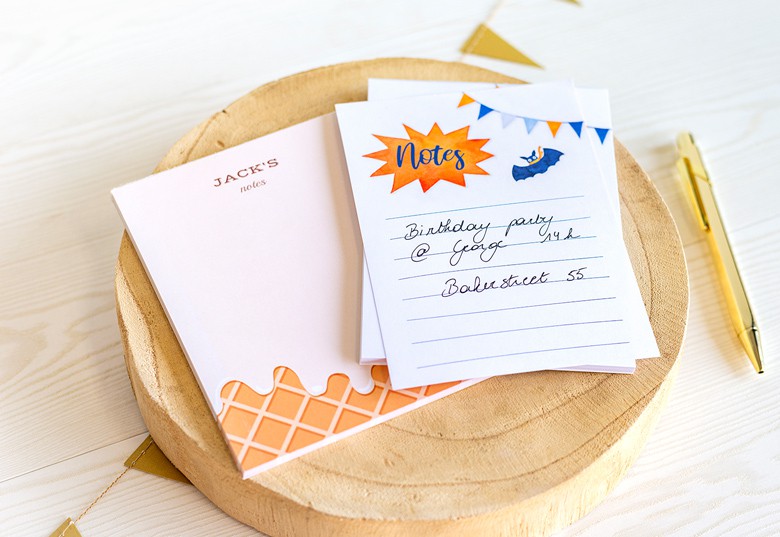 JACK'S
notes
Notes
Birthday party
@ George 14h
Bakerstreet 55